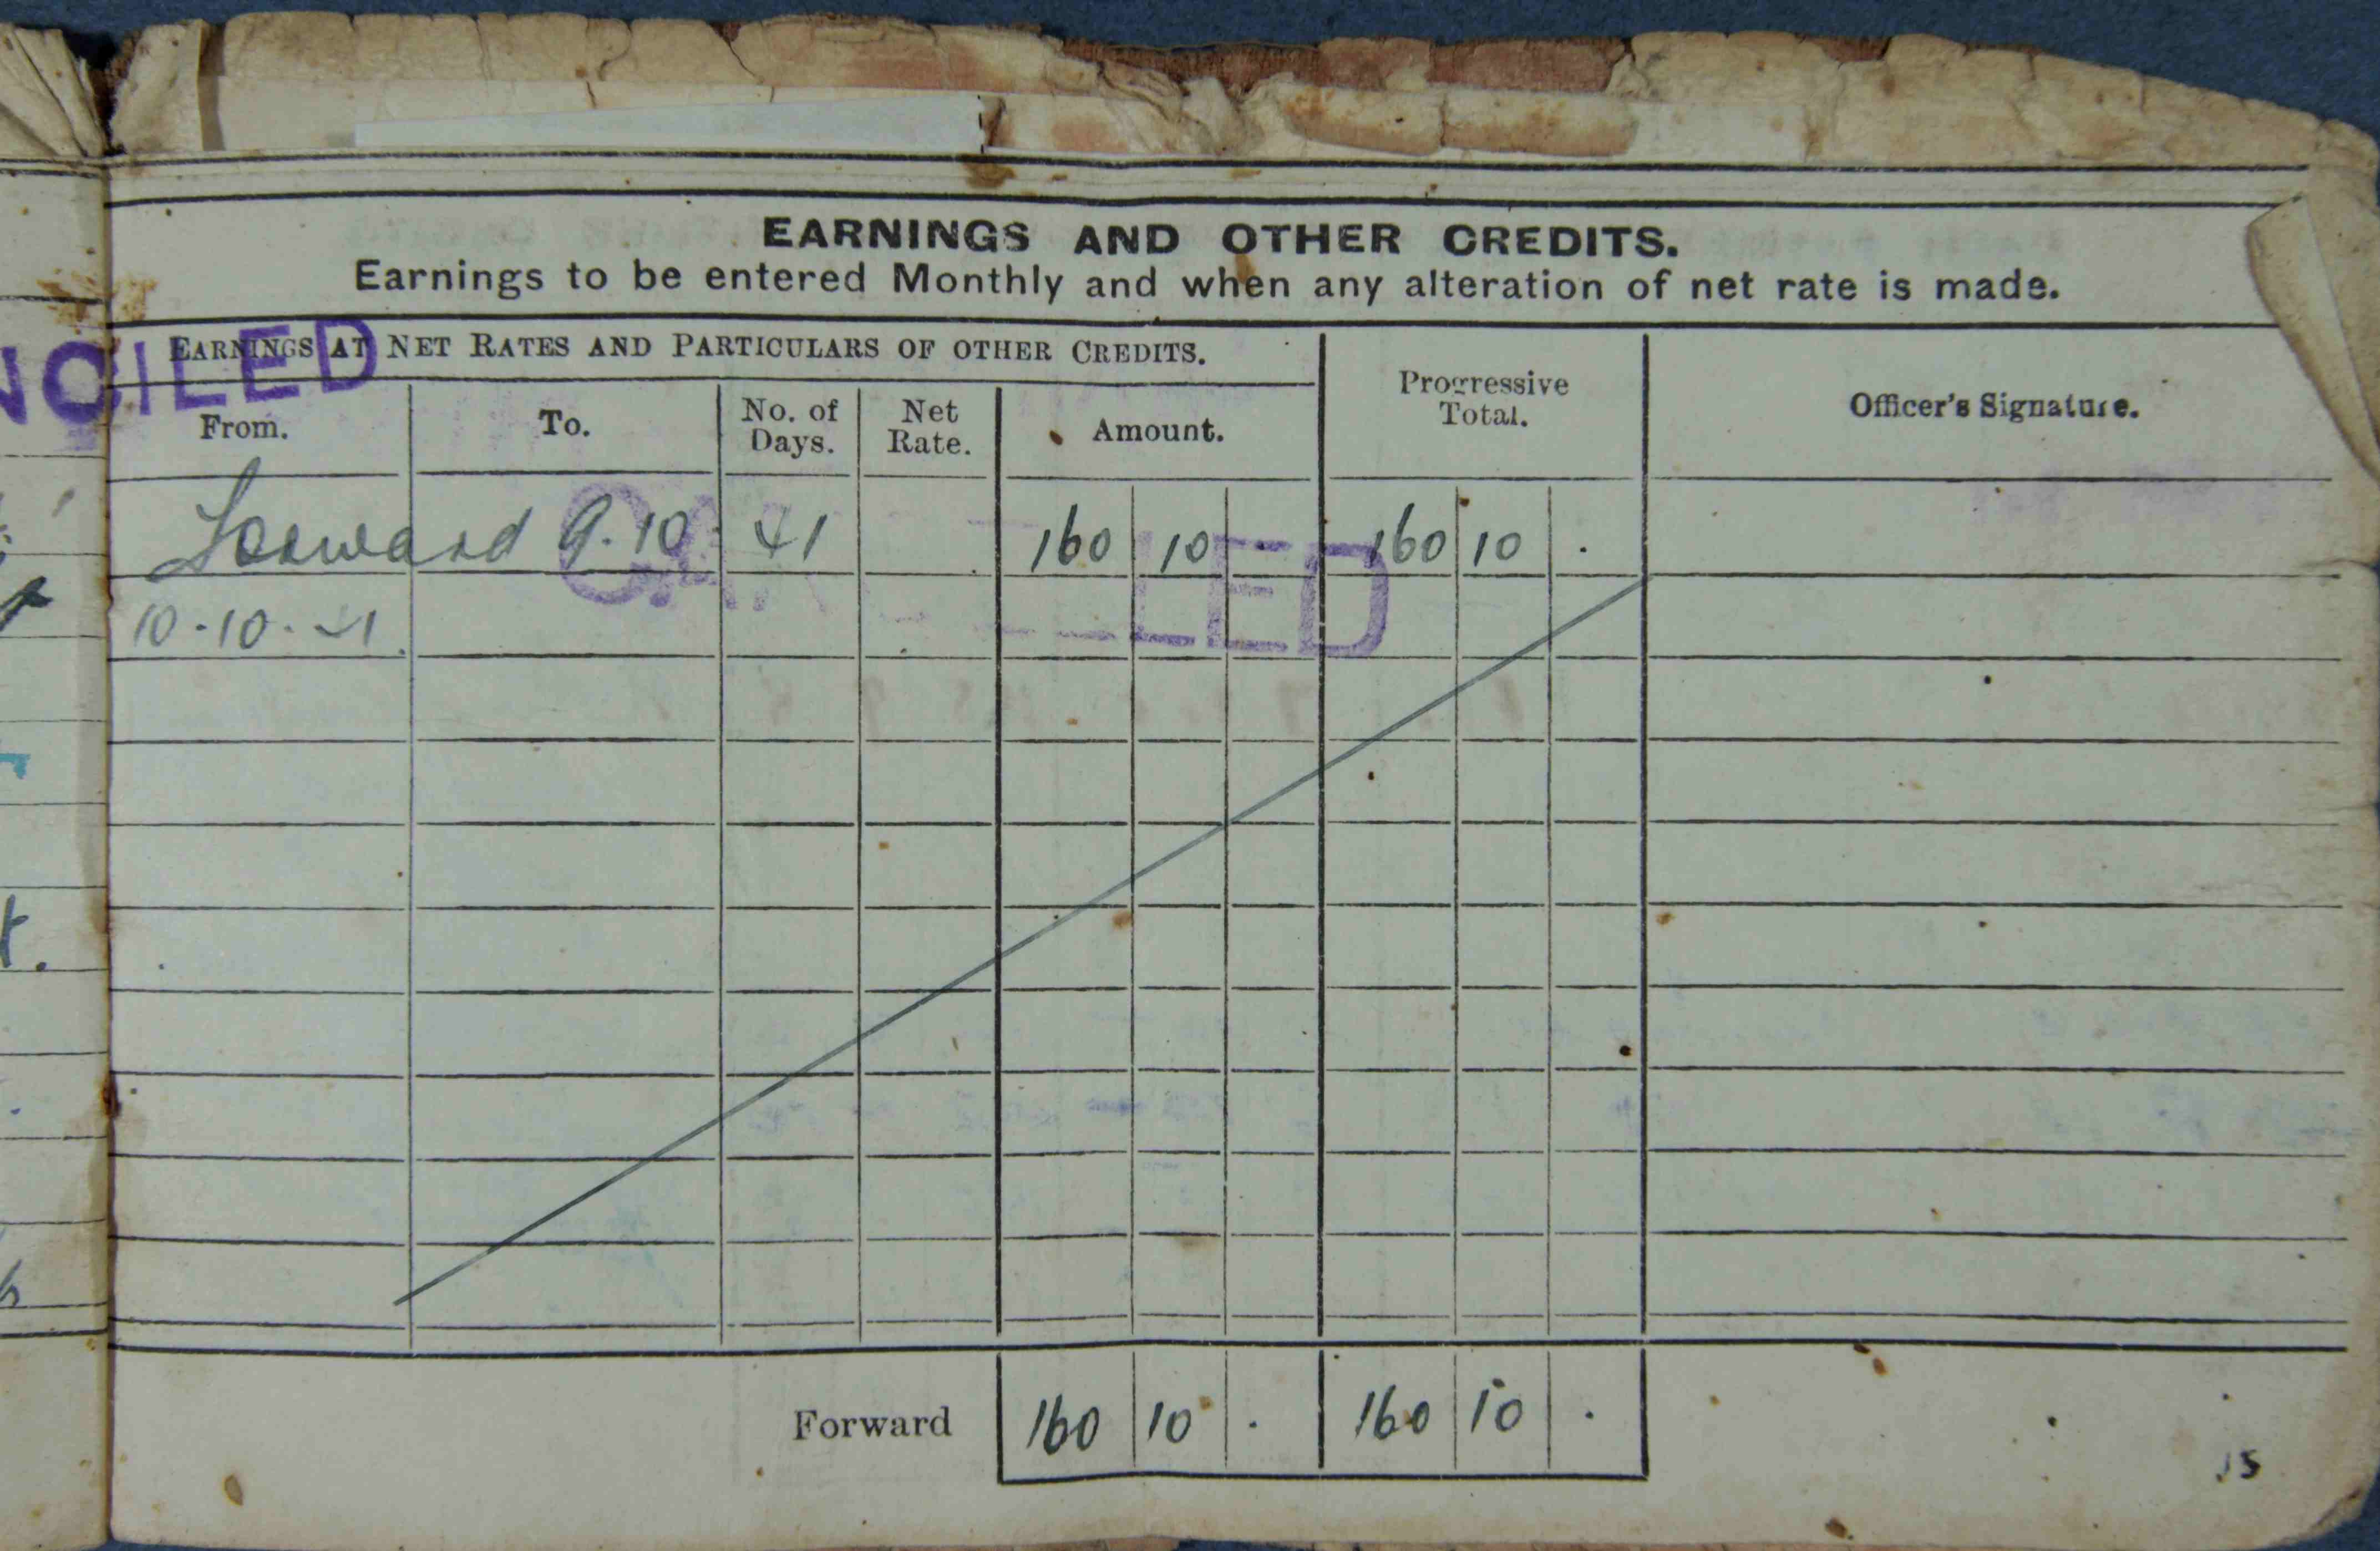 EARNINGS AND OTHER CREDITS.
Earnings to be entered Monthly and when any alteration of net rate is made.
EARNINGS AT NET RATES AND PARTICULARS OF OTHER CREDITS.
NCILED
From.
To.
No. of Days.
Net Rate.
Amount.
Progressive Total.
Officer's Signature.
Forward 9.10 41 160 10 . 160 10 .
LED
10.10.41
Forward 160 10 . 160 10 .
15